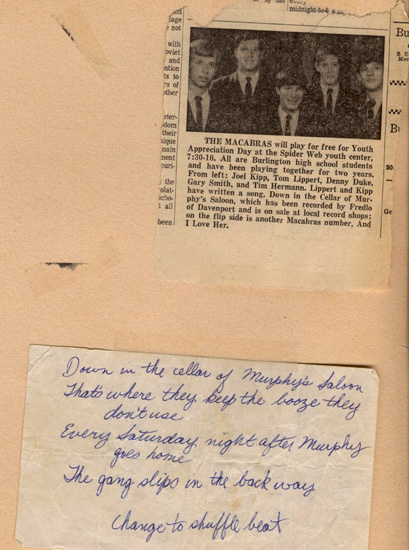 midnight to 4 a.m.
jage
e not
with
oviet
and
ntion
ts to
rs of
other
eter-
sdom
their
nique
main
ment
curi-
the
olat-
echo-
t all
been
Bu
THE MACABRAS will play for free for Youth
Appreciation Day at the Spider Web youth center,
7:30-10. All are Burlington high school students
and have been playing together for two years.
From left: Joel Kipp, Tom Lippert, Denny Duke,
Gary Smith, and Tim Hermann. Lippert and Kipp
have written a song, Down in the Cellar of Mur-
phy's Saloon, which has been recorded by Fredlo
of Davenport and is on sale at local record shops;
on the flip side is another Macabras number, And
I Love Her.
50
Ge
Down in the cellar of Murphy's Saloon
That's where they keep the booze they
don't use
Every Saturday night after Murphy
goes home
The gang slips in the back way
Change to shuffle beat